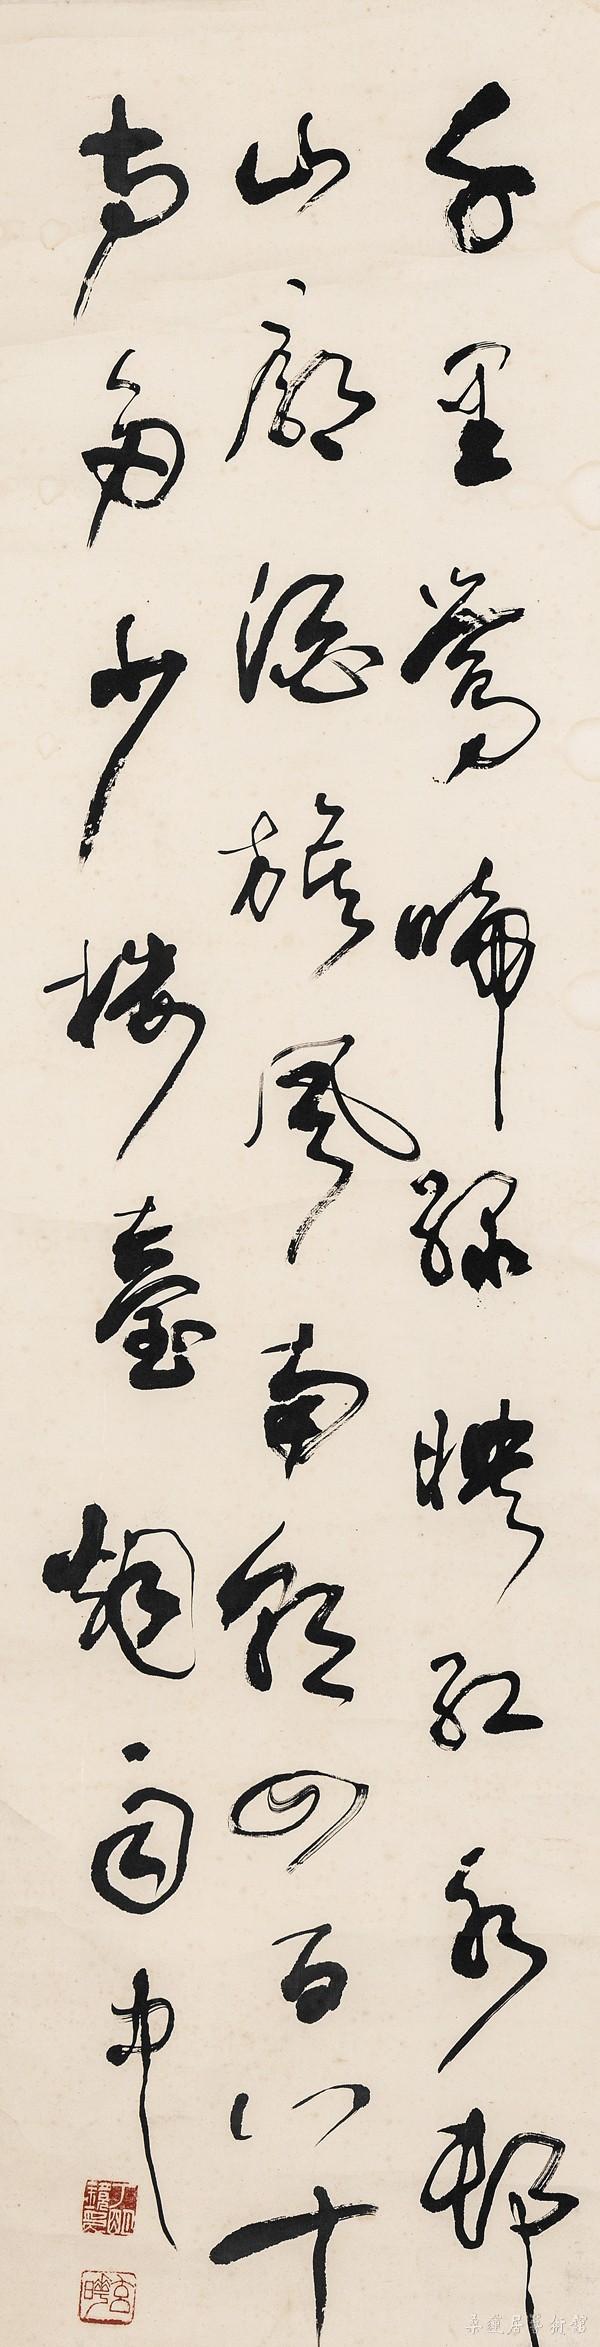 千里鶯啼綠映紅水村
山廓酒旗風南朝四百八十
寺多少樓臺烟雨中
桑蓮居藝術館